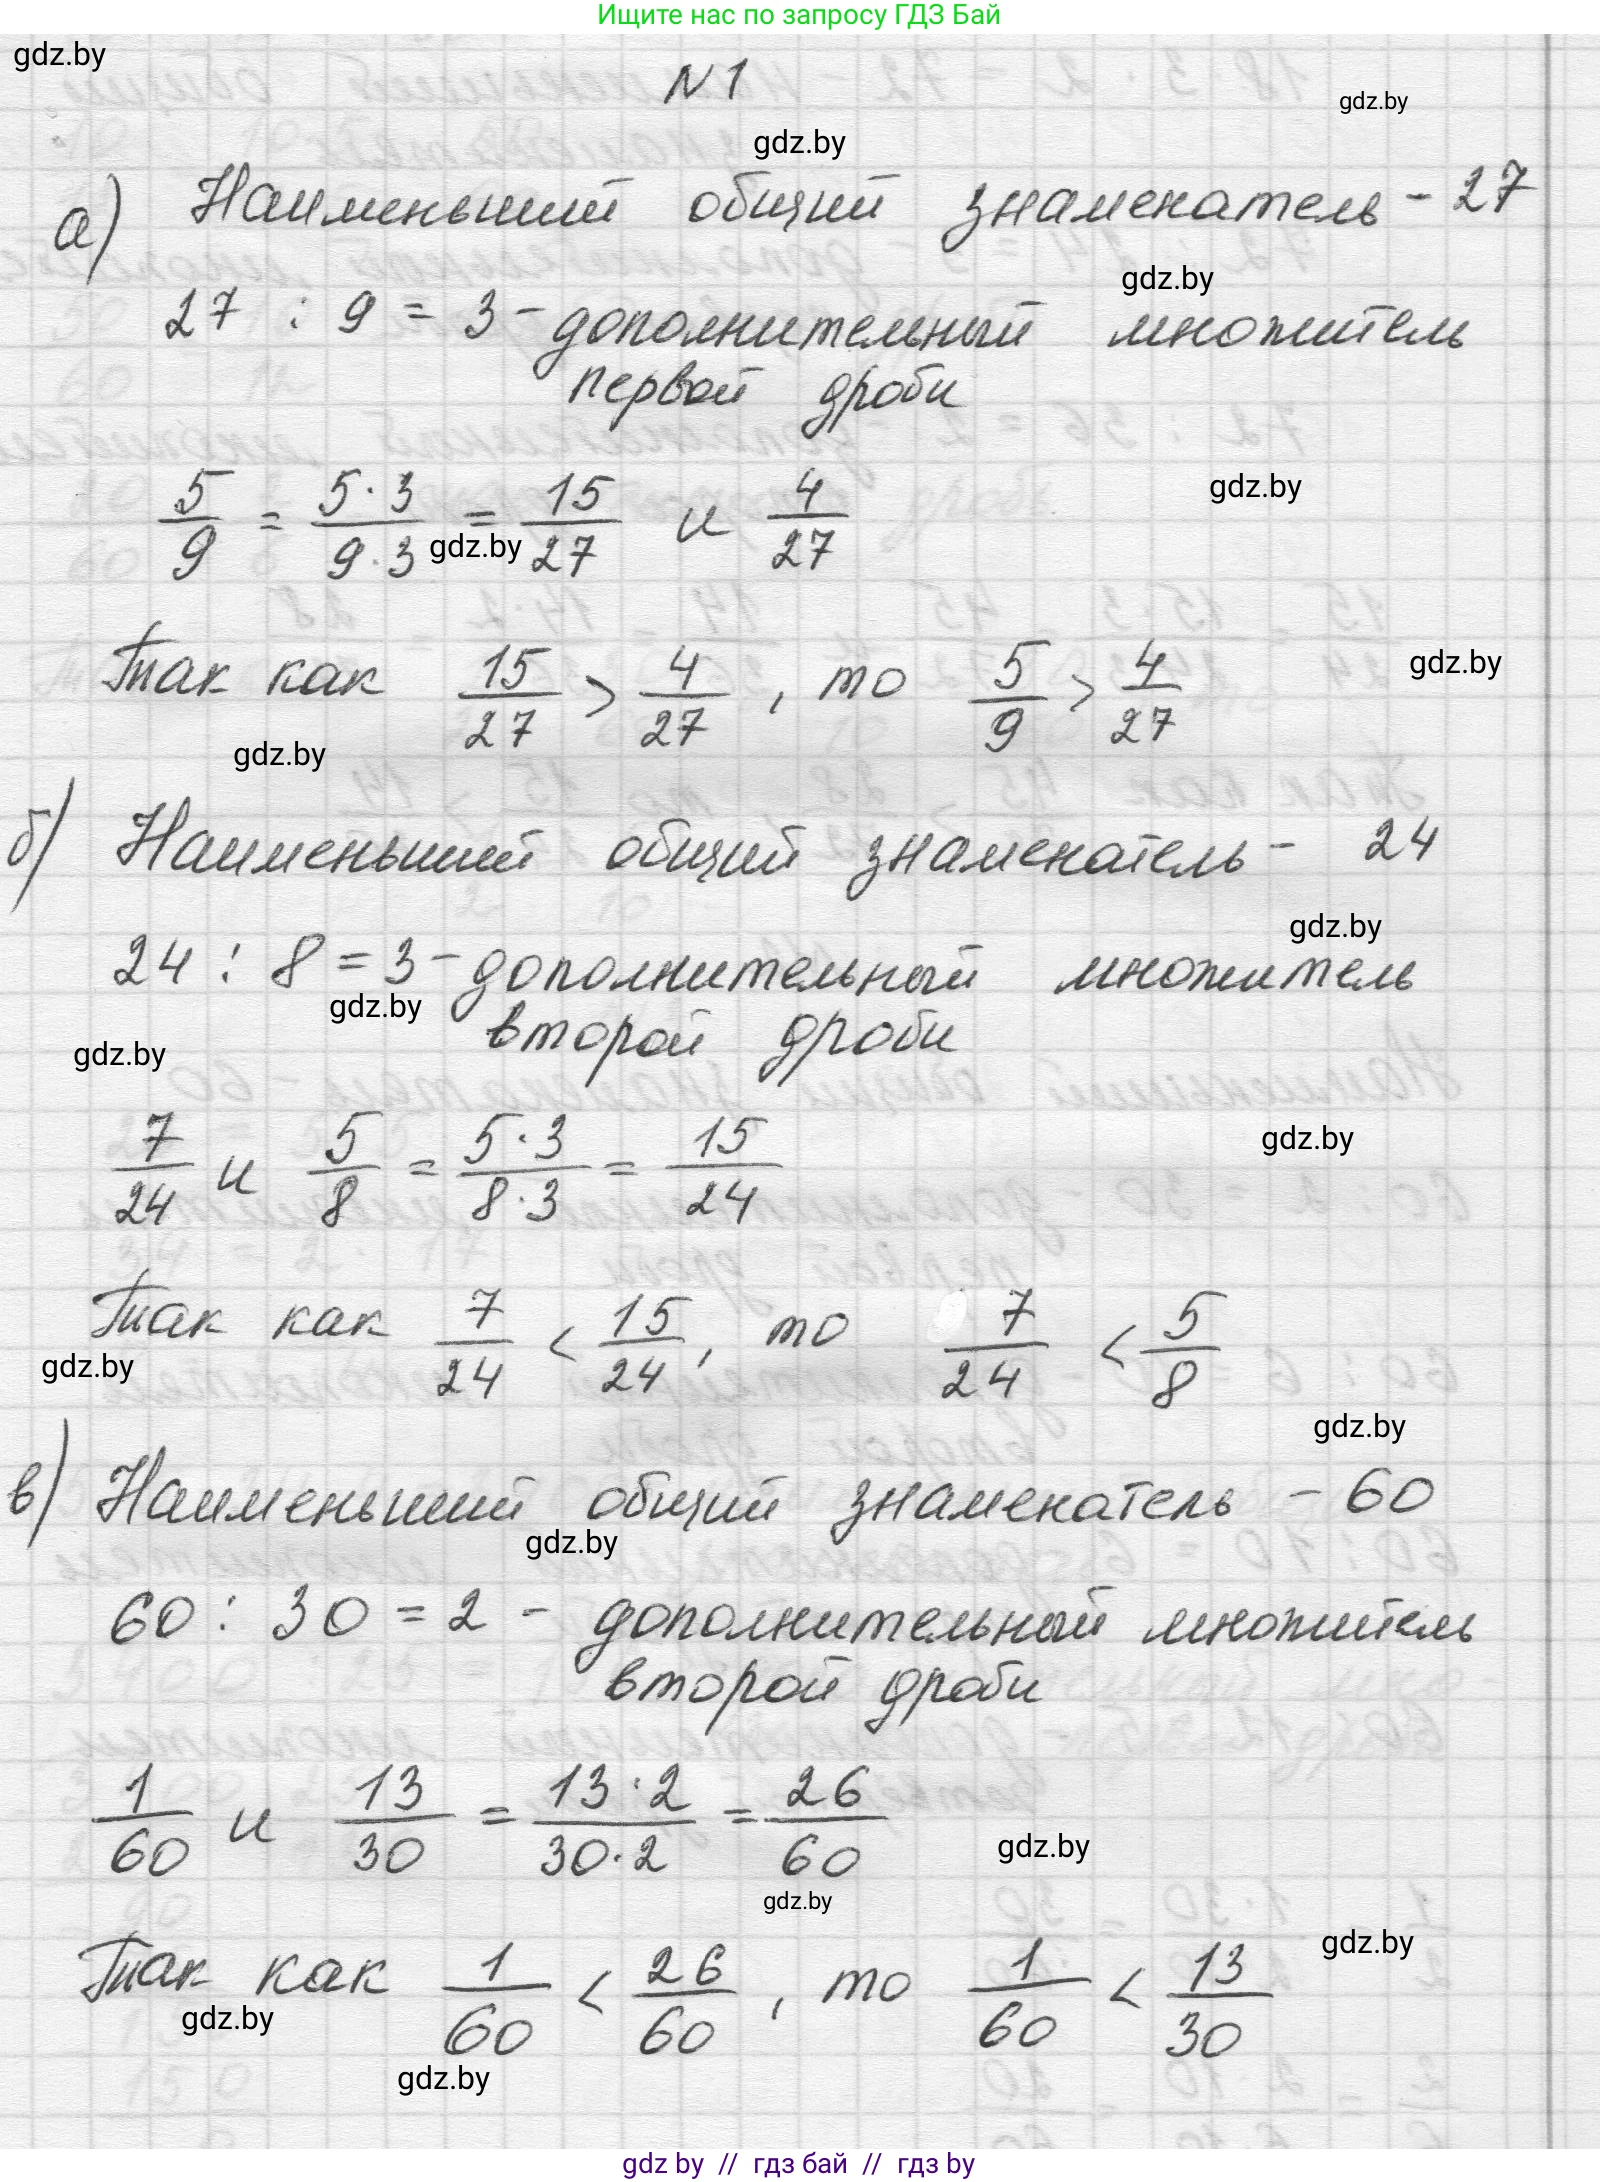 Ищите нас по запросу ГДЗ Бай
gdz.by
N 1
gdz.by
gdz.by
а) Наименьший общий знаменатель - 27
gdz.by
27 : 9 = 3 - дополнительный множитель
первой дроби
gdz.by
5/9 = 5·3/9·3 = 15/27 и 4/27
gdz.by
Так как 15/27 > 4/27, то 5/9 > 4/27
gdz.by
gdz.by
б) Наименьший общий знаменатель - 24
gdz.by
24 : 8 = 3 - дополнительный множитель
gdz.by
второй дроби
gdz.by
gdz.by
7/24 и 5/8 = 5·3/8·3 = 15/24
Так как 7/24 < 15/24, то 7/24 < 5/8
gdz.by
gdz.by
в) Наименьший общий знаменатель - 60
gdz.by
60 : 30 = 2 - дополнительный множитель
второй дроби
1/60 и 13/30 = 13·2/30·2 = 26/60
gdz.by
gdz.by
gdz.by
Так как 1/60 < 26/60, то 1/60 < 13/30
gdz.by
gdz.by
gdz by // гдз бай // gdz by